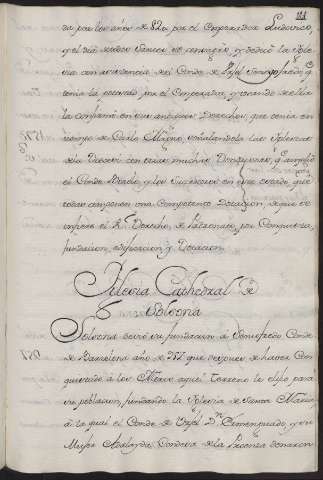 da por los años de 820 por el Emperador Ludovico,
y el dia de todos Santos se consagro, y dedicó la Igle-
sia con asistencia del Conde de Urgel
tenia la potestad por el Emperador, y usando de ella
la confirmó en sus antiguos Derechos, que tenia en
tiempo de Carlo Magno, señalandola las Iglesias
dela Diocesi con otras muchas Donaciones, q.e
el Conde y los Succesores en este estado, que
todas componen una Competente Dotacion, de que se
infiere el R.l Derecho de Patronato, por Conquista,
fundacion, edificacion, y Dotacion.
Iglesia Cathedral de
Solsona
Solsona devió su fundacion á Conde
de Barcelona año de 777 que despues de haver Con-
quistado á los Moros aquel terreno le eligio para
su poblacion, fundando la Iglesia de Santa Maria,
á la qual el Conde de Urgel D.n Ermengaudo, y su
Muger Adalayda Condesa de la Provenza donaron